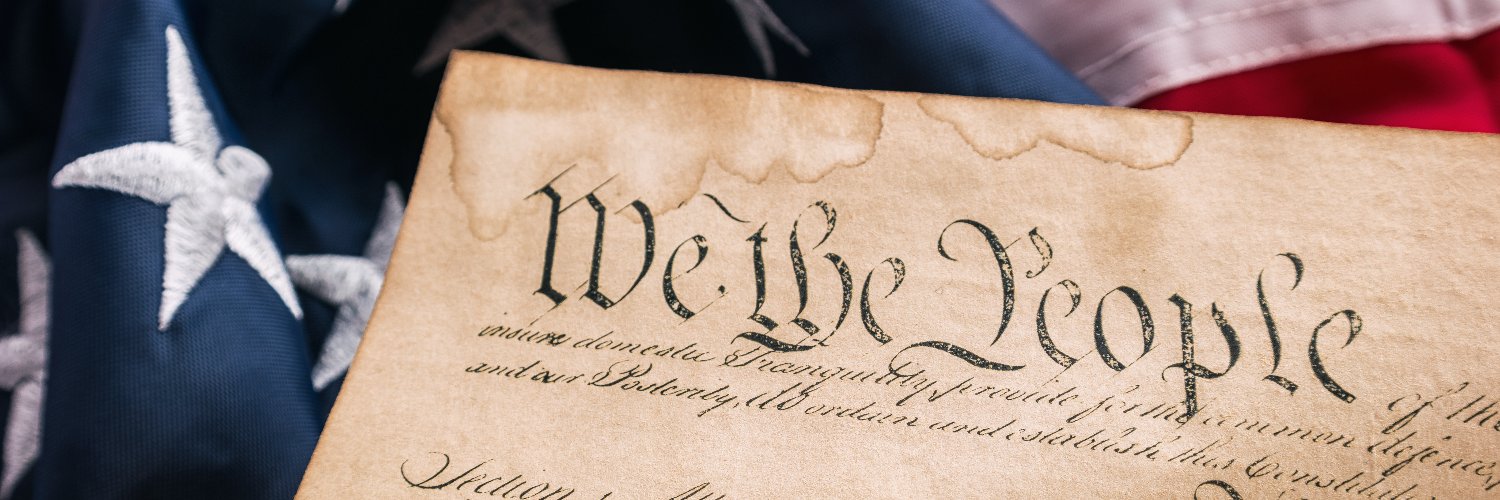 We the People of the
insure domestic Tranquility, provide for the common defence,
and our Posterity, do ordain and establish this
Section